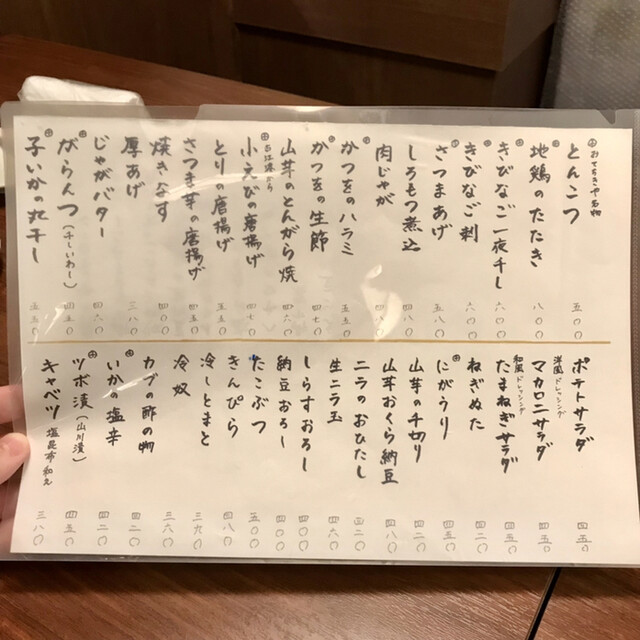 おさつきや名物
とんこつ 五〇〇
地鶏のたたき 八〇〇
きびなご一夜干し 六〇〇
きびなご刺 六〇〇
さつまあげ 四五〇
しろもつ煮込 四八〇
肉じゃが 四五〇
かつをのハラミ 五五〇
かつをの生節 四七〇
山芋のとんがら焼 四六〇
小えびの唐揚げ 四七〇
とりの唐揚げ 五五〇
さつま芋の唐揚げ 四五〇
焼きなす 四五〇
厚あげ 三八〇
じゃがバター 四六〇
がらんつ(干しいわし) 四五〇
子いかの丸干し 五五〇
ポテトサラダ 四五〇
洋風ドレッシング
マカロニサラダ 四五〇
和風ドレッシング
たまねぎサラダ 四五〇
ねぎぬた 四二〇
にがうり 四五〇
山芋の千切り 四二〇
山芋おくら納豆 四八〇
ニラのおひたし 四二〇
生ニラ玉 四六〇
しらすおろし 四〇〇
納豆おろし 四〇〇
たこぶつ 五〇〇
きんぴら 四八〇
冷しとまと 三六〇
冷奴 三六〇
カブの酢の物 四二〇
いかの塩辛 四二〇
ツボ漬(山川漬) 四五〇
キャベツ 塩昆布和え 三八〇